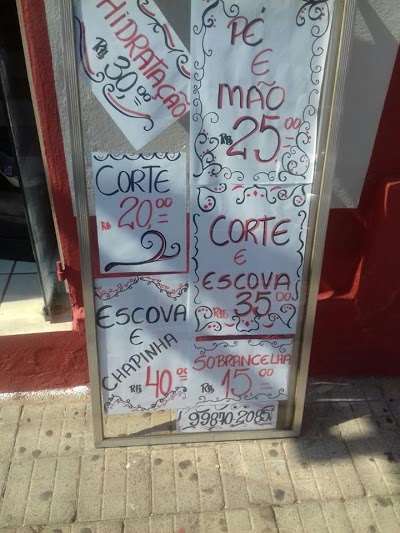 HIDRATAÇÃO
R$ 30,00
PÉ
E
MÃO
R$ 25,00
CORTE
R$ 20,00
CORTE
E
ESCOVA
R$ 35,00
ESCOVA
E
CHAPINHA
R$ 40,00
SOBRANCELHA
R$ 15,00
99870-2085